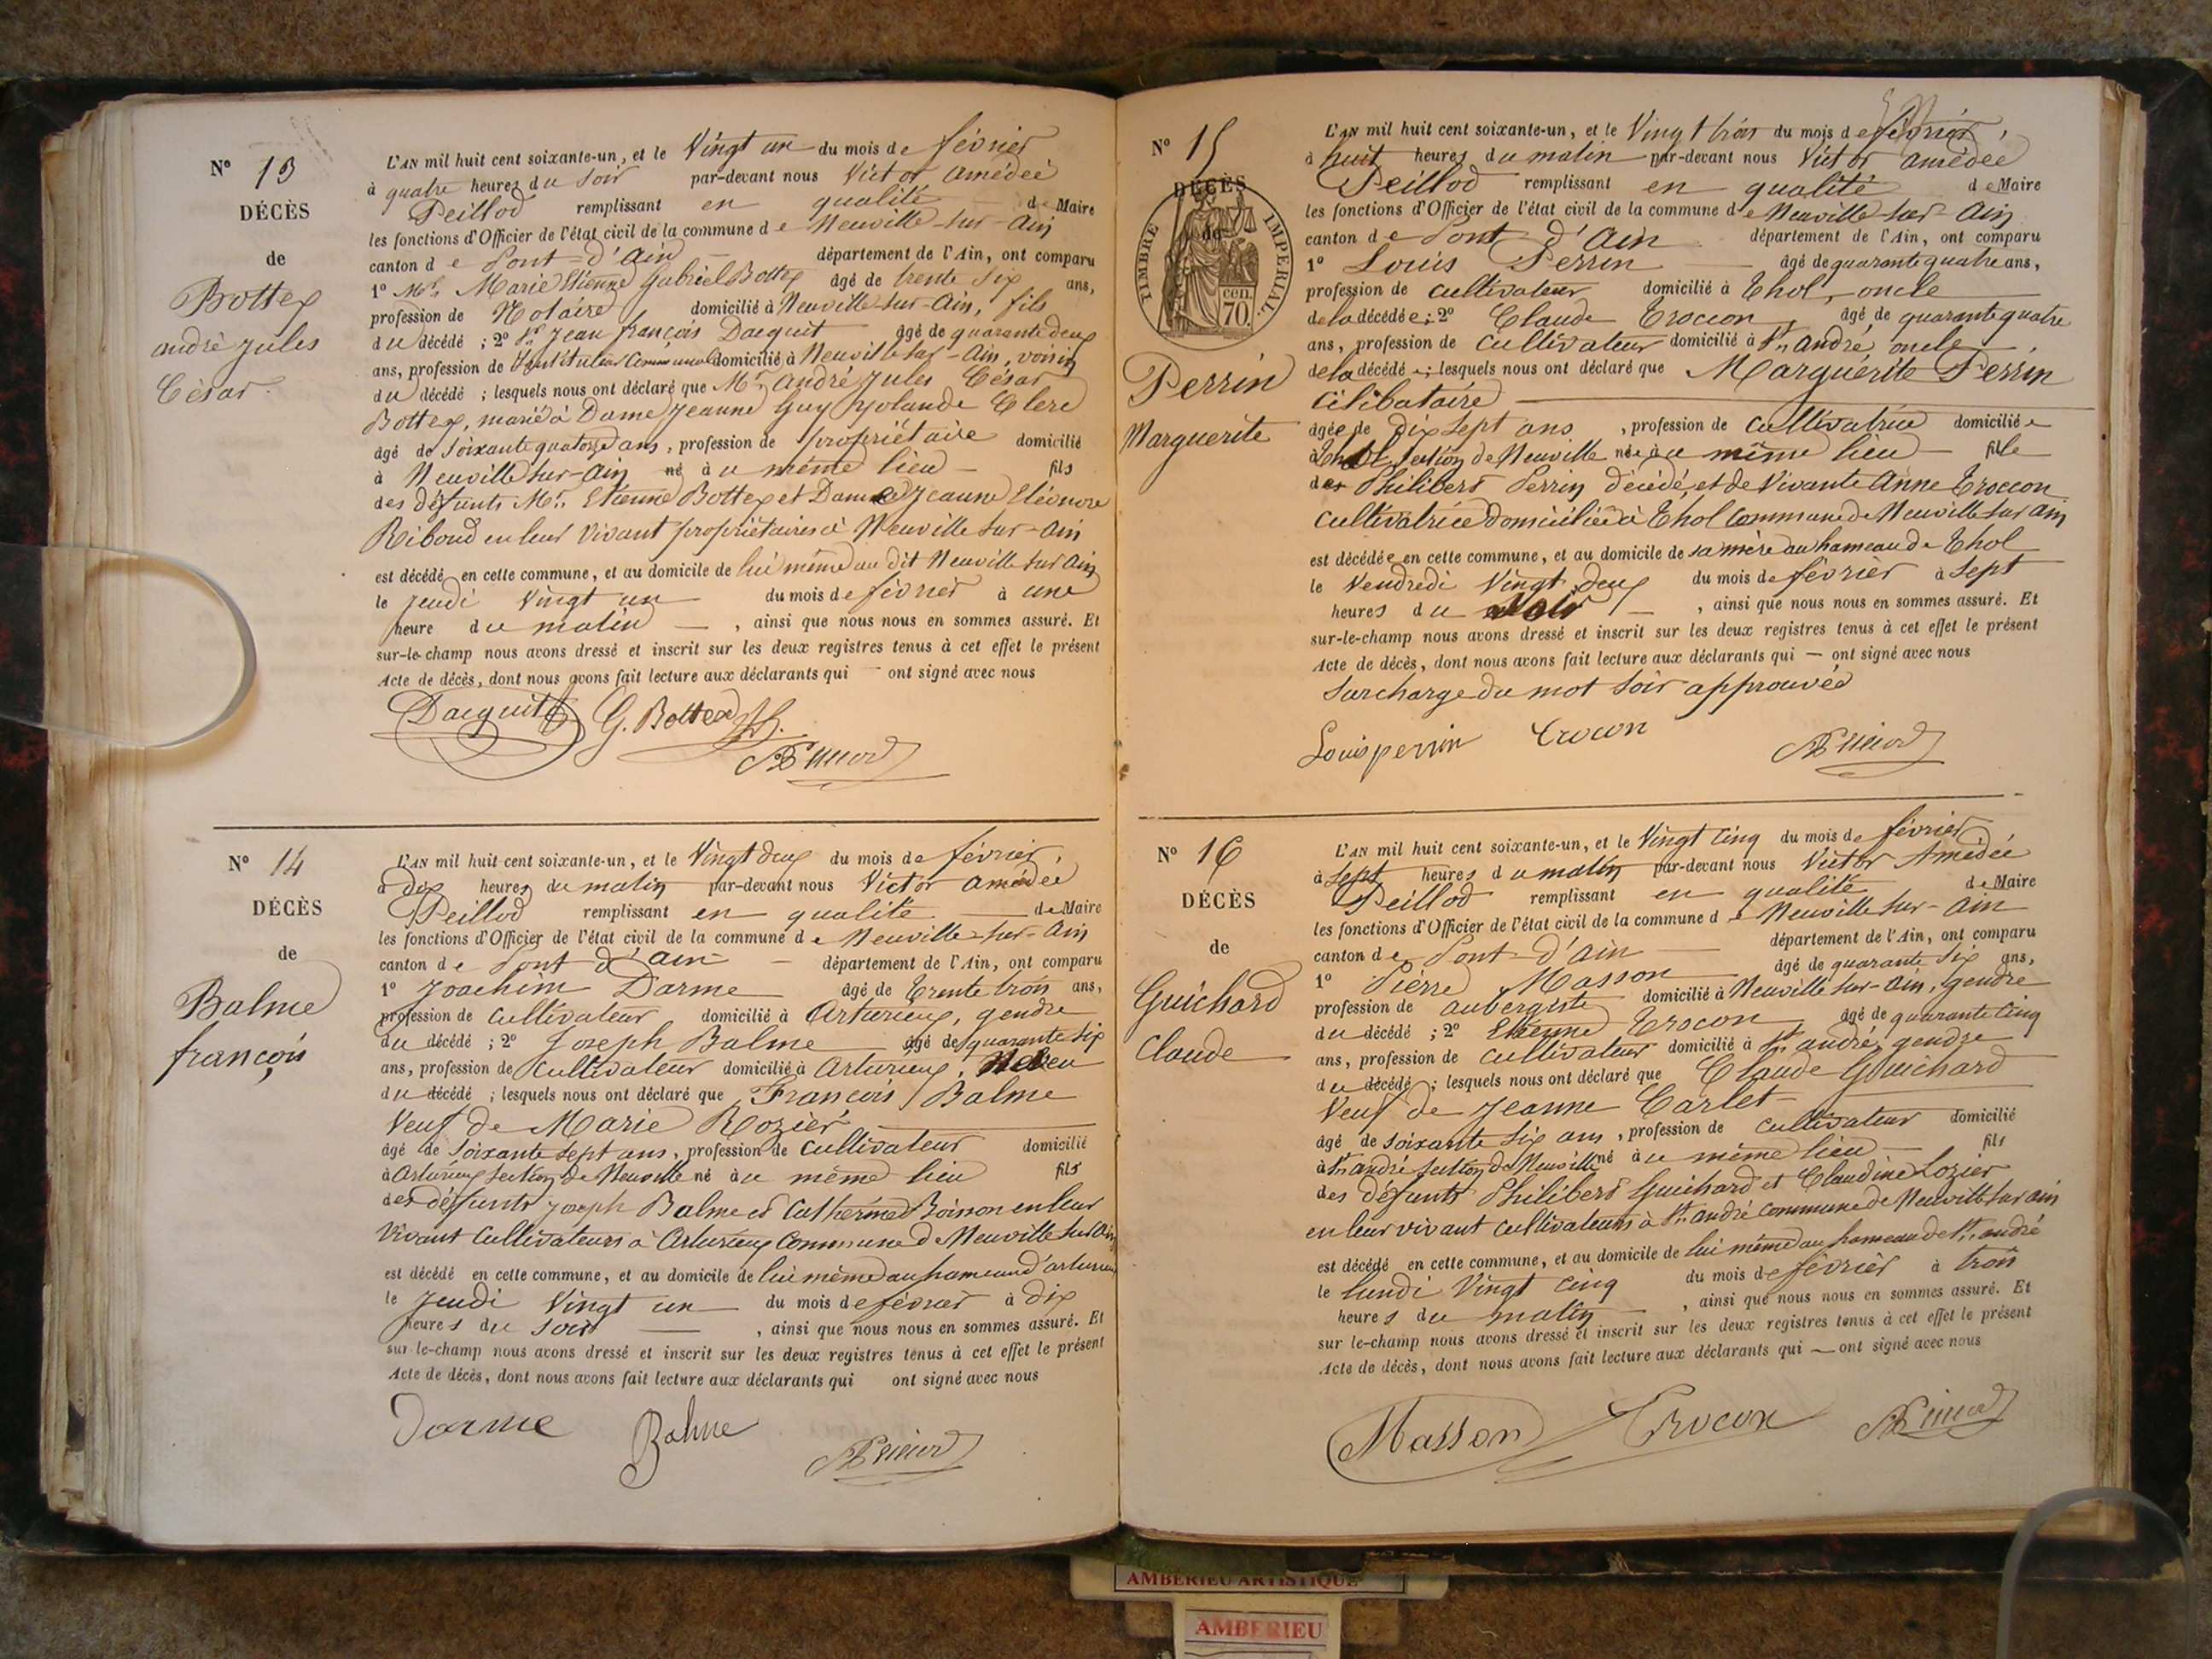 N° 13
DÉCÈS
de
Bottex
andré jules
César
L'AN mil huit cent soixante-un, et le Vingt un du mois de février
à quatre heures du soir par-devant nous Victor amédée
Peillod remplissant en qualité de Maire
les fonctions d'Officier de l'état civil de la commune de Neuville-sur-Ain
canton de Pont-d'Ain département de l'Ain, ont comparu
1° Mr. Marie Etienne Gabriel Bottex âgé de trente six ans,
profession de Notaire domicilié à Neuville-sur-Ain, fils
du décédé ; 2° Sr. Jean françois Dacquit âgé de quarante deux
ans, profession de Instituteur Communal domicilié à Neuville sur-Ain, voisin
du décédé ; lesquels nous ont déclaré que Mr. André Jules César
Bottex, marié à Dame Jeanne Guy Yolande Clerc
âgé de soixante quatorze ans, profession de propriétaire domicilié
à Neuville sur-Ain né au même lieu fils
des défunts Mr. Etienne Bottex et Dame Jeanne Eléonore
Riboud en leur vivant propriétaires à Neuville sur-Ain
est décédé en cette commune, et au domicile de lui même au dit Neuville sur Ain
le jeudi Vingt un du mois de février à une
heure du matin , ainsi que nous nous en sommes assuré. Et
sur-le-champ nous avons dressé et inscrit sur les deux registres tenus à cet effet le présent
Acte de décès, dont nous avons fait lecture aux déclarants qui ont signé avec nous
Dacquit G. Bottex
N° 14
DÉCÈS
de
Balme
françois
L'AN mil huit cent soixante-un, et le Vingt deux du mois de février,
à dix heures du matin par-devant nous Victor amédée
Peillod remplissant en qualité de Maire
les fonctions d'Officier de l'état civil de la commune de Neuville-sur-Ain
canton de Pont d'Ain département de l'Ain, ont comparu
1° Joachim Darme âgé de trente trois ans,
profession de cultivateur domicilié à Arturieux, gendre
du décédé ; 2° Joseph Balme âgé de quarante six
ans, profession de cultivateur domicilié à Arturieux, Neveu
du décédé ; lesquels nous ont déclaré que François Balme
Veuf de Marie Rozier
âgé de soixante sept ans, profession de cultivateur domicilié
à Arturieux section de Neuville né au même lieu fils
des défunts joseph Balme et Catherine Boisson en leur
vivant cultivateurs à Arturieux Commune de Neuville sur Ain
est décédé en cette commune, et au domicile de lui même au hameau d'arturieux
le jeudi Vingt un du mois de février à dix
heures du soir , ainsi que nous nous en sommes assuré. Et
sur-le-champ nous avons dressé et inscrit sur les deux registres tenus à cet effet le présent
Acte de décès, dont nous avons fait lecture aux déclarants qui ont signé avec nous
Darme Balme
N° 15
DÉCÈS
de
TIMBRE IMPERIAL.
70. cen.
Perrin
Marguerite
L'AN mil huit cent soixante-un, et le Vingt trois du mois de février,
à huit heures du matin par-devant nous Victor amédée
Peillod remplissant en qualité de Maire
les fonctions d'Officier de l'état civil de la commune de Neuville-sur-Ain
canton de Pont-d'Ain département de l'Ain, ont comparu
1° Louis Perrin âgé de quarante quatre ans,
profession de cultivateur domicilié à Thol, oncle
de la décédée ; 2° Claude Trocon, âgé de quarante quatre
ans, profession de cultivateur domicilié à St. andré, oncle
de la décédée ; lesquels nous ont déclaré que Marguerite Perrin
célibataire
âgée de dix sept ans , profession de cultivatrice domiciliée
à Thol section de Neuville née au même lieu fille
de Philibert Perrin décédé, et de Vivante Anne Trocon
cultivatrice domiciliée à Thol commune de Neuville sur ain
est décédée en cette commune, et au domicile de sa mère au hameau de Thol
le Vendredi Vingt deux du mois de février à sept
heures du soir , ainsi que nous nous en sommes assuré. Et
sur-le-champ nous avons dressé et inscrit sur les deux registres tenus à cet effet le présent
Acte de décès, dont nous avons fait lecture aux déclarants qui ont signé avec nous
surcharge du mot soir approuvée
Louis perrin Trocon
N° 16
DÉCÈS
de
Guichard
Claude
L'AN mil huit cent soixante-un, et le Vingt cinq du mois de février
à sept heures du matin par-devant nous Victor Amédée
Peillod remplissant en qualité de Maire
les fonctions d'Officier de l'état civil de la commune de Neuville sur-Ain
canton de Pont-d'Ain département de l'Ain, ont comparu
1° Pierre Masson âgé de quarante six ans,
profession de aubergiste domicilié à Neuville sur-Ain, gendre
du décédé ; 2° Etienne Trocon âgé de quarante cinq
ans, profession de cultivateur domicilié à St. andré, gendre
du décédé ; lesquels nous ont déclaré que Claude Guichard
Veuf de Jeanne Carlet
âgé de soixante six ans , profession de cultivateur domicilié
à St. andré section de Neuville né au même lieu fils
des défunts Philibert Guichard et Claudine Lozier
en leur vivant cultivateurs à St. andré commune de Neuville sur ain
est décédé en cette commune, et au domicile de lui même au hameau de St. andré
le lundi Vingt cinq du mois de février à trois
heures du matin , ainsi que nous nous en sommes assuré. Et
sur le-champ nous avons dressé et inscrit sur les deux registres tenus à cet effet le présent
Acte de décès, dont nous avons fait lecture aux déclarants qui ont signé avec nous
Masson Trocon
AMBERIEU ARTISTIQUE
AMBERIEU